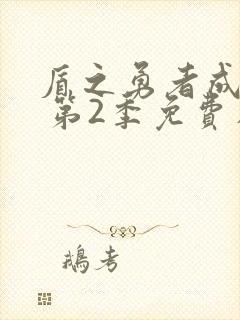 盾之勇者成
第2季免費
鵝考